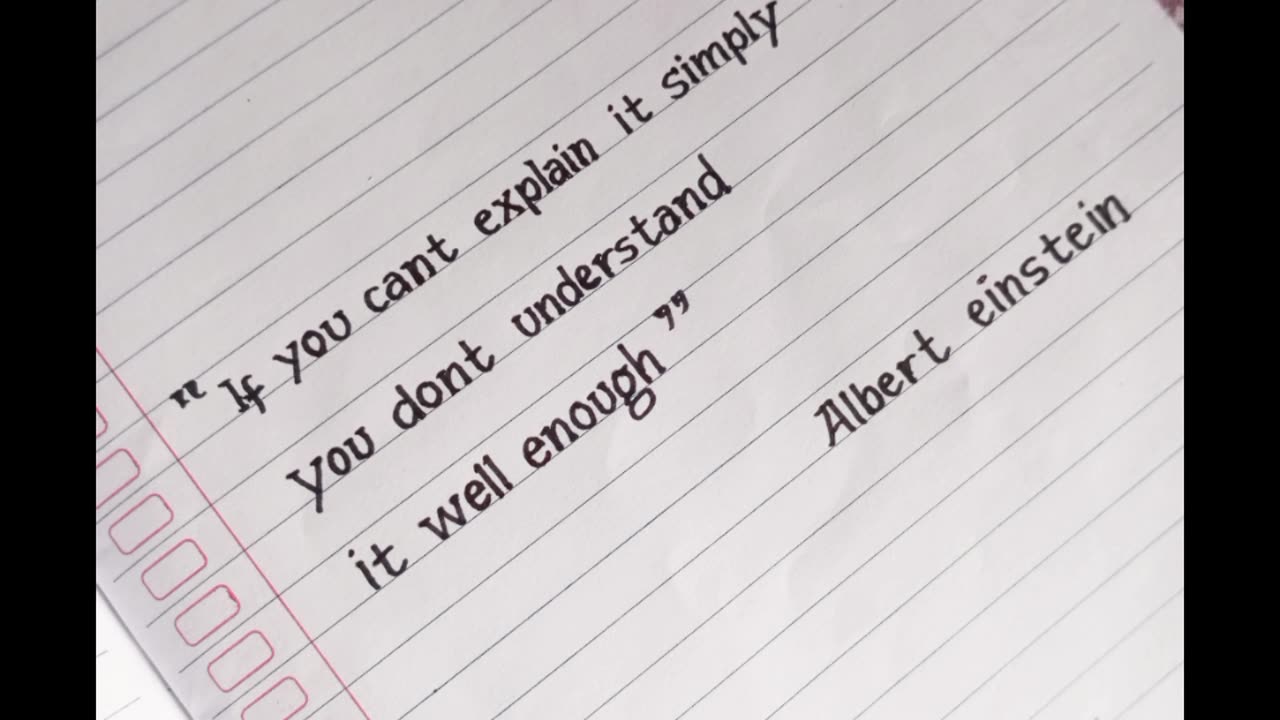 "If you cant explain it simply
you dont understand
it well enough"
Albert einstein